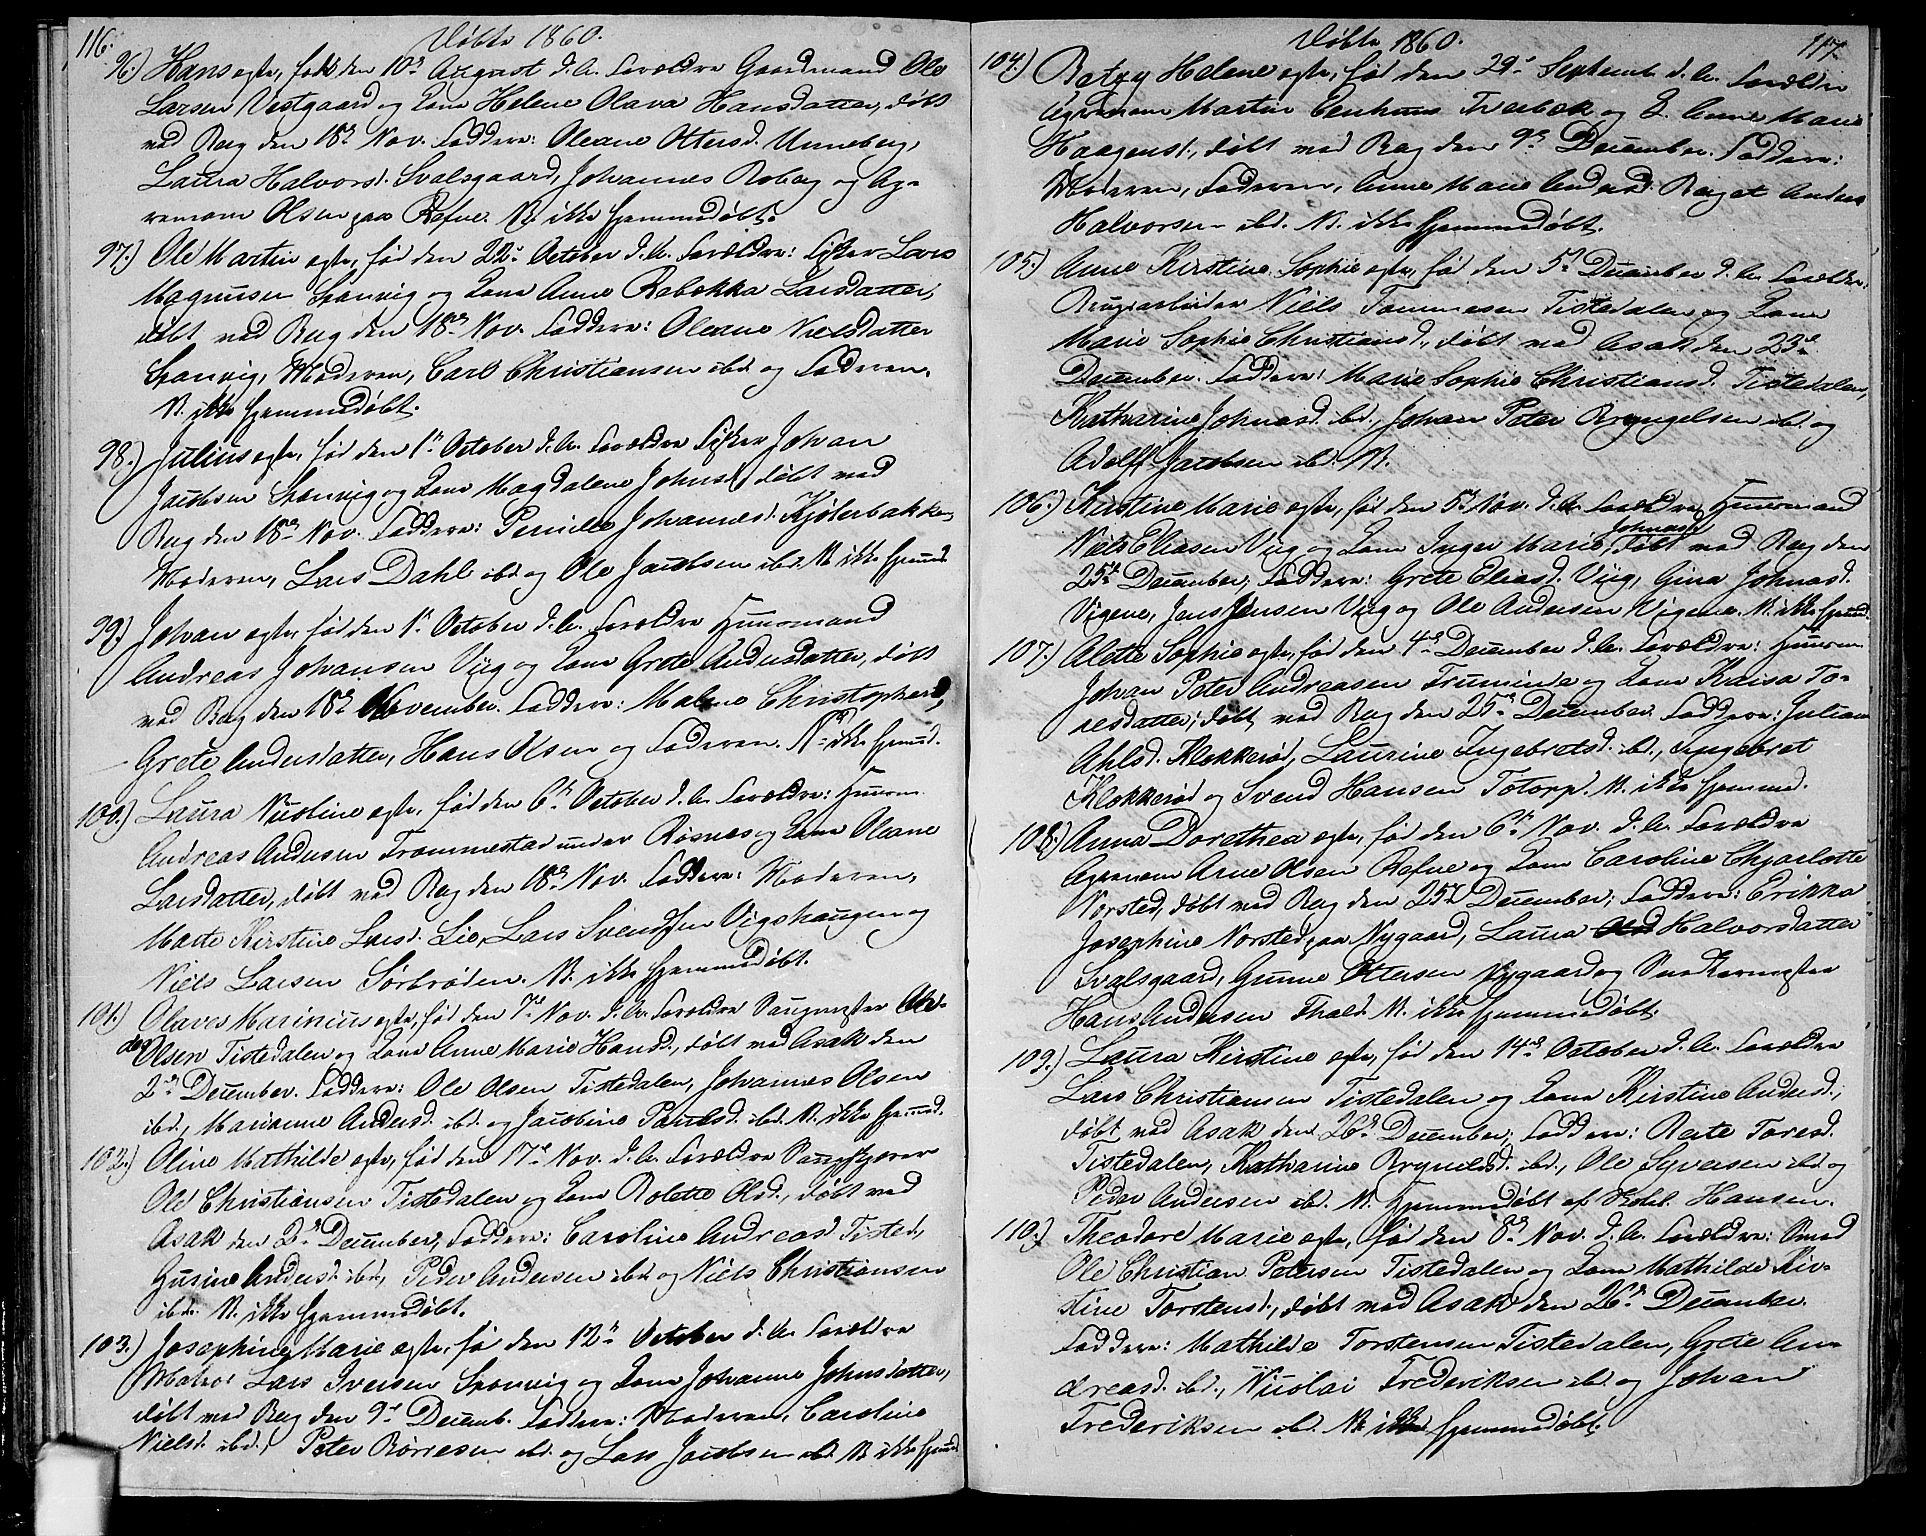 116.
Döbte 1860.
96.) Hans egte, födt den 10de August d. A. Forældre Gaardmand Ole
Larsen Vestgaard og Kone Helene Olava Hansdatter, döbt
ved Berg den 18de Nov. Faddere: Oleane Ottersd. Unneberg,
Laura Halvorsd. Svalsgaard, Johannes Roberg og Ag-
renom Olsen paa Refne. N. ikke hjemmedöbt.
97.) Ole Martin egte, fød den 22de October d. A. Forældre: Fisker Lars
Magnusen Sponvig og Kone Anne Rebekka Larsdatter,
döbt ved Berg den 18de Nov. Faddere: Oleane Nielsdatter
Sponvig, Moderen, Carl Christiansen ibd. og Faderen.
N. ikke hjemmedöbt.
98.) Julius egte, fød den 1ste October d. A. Forældre Fisker Johan
Jacobsen Sponvig og Kone Magdalene Johnsd. döbt ved
Berg den 18de Nov. Faddere: Pernille Johannesd. Kjölerbakken,
Moderen, Lars Dahl ibd. og Ole Jacobsen ibd. N. ikke hjemmed.
99.) Johan egte, fød den 1ste October d. A. Forældre Huusmand
Andreas Johansen Viig og Kone Grete Andersdatter, döbt
ved Berg den 18de November. Faddere: Malene Christophersd.,
Grete Andersdatter, Hans Olsen og Faderen. N. ikke hjemmed.
100.) Laura Nicoline egte, fød den 6te October d. A. Forældre: Huusm.
Andreas Andersen Trommestad under Rösnes og Kone Oleane
Larsdatter, döbt ved Berg den 18de Nov. Faddere: Moderen,
Marte Kirstine Larsd. Lie, Lars Svendsen Vigshaugen og
Niels Larsen Sörbröden. N. ikke hjemmedöbt.
101.) Olaves Marinius egte, fød den 7de Nov. d. A. Forældre Saugmester Ole
Olsen Tistedalen og Kone Anne Marie Hansd., döbt ved Asak den
2den December. Faddere: Ole Olsen Tistedalen, Johannes Olsen
ibd., Marianne Andersd. ibd. og Jacobine Paulsd. ibd. N. ikke hjemmed.
102.) Oline Mathilde egte, fød den 17de Nov. d. A. Forældre
Ole Christiansen Tistedalen og Kone Rolette Olsd., döbt ved
Asak den 2den December, Faddere: Caroline Andreasd Tisted.,
Gurine Andersd. ibd., Peder Andersen ibd. og Niels Christiansen
ibd. N. ikke hjemmedöbt.
103.) Josephine Marie egte, fød den 12te October d. A. Forældre
Matros Lars Iversen Sponvig og Kone Johanne Johnsdatter,
döbt ved Berg den 9de Decemb. Faddere: Moderen, Caroline
Nielsd. ibd., Peter Börresen ibd. og Lars Jacobsen ibd. N. ikke hjemmed.
117.
Döbte 1860.
104.) Betzy Helene egte, fød den 29de Septemb. d. A. Forældre
Agrenom Martin Træbæk og K. Anne Marie
Haagensd., döbt ved Berg den 9de December. Faddere:
Moderen, Faderen, Anne Marie Andersd. Berg et Anders
Halvorsen ibd. N. ikke hjemmedöbt.
105.) Anne Kirstine Sophie egte, fød den 5te December d. A. Forældre:
Brugsarbeider Niels Tommesen Tistedalen og Kone
Marie Sophie Christiansd., döbt ved Asak den 23de
December. Faddere: Marie Sophie Christiansd. Tistedalen,
Katharine Johnasd. ibd., Johan Peter Bryngelsen ibd. og
Adolff Jacobsen ibd. N.
106.) Kirstine Marie egte, fød den 5te Nov. d. A. Forældre, Huusmand
Niels Eliasen Viig og Kone Inger Marie Johnasd., döbt ved Berg den
25de December, Faddere: Grete Eliasd. Viig, Gina Johnasd.
Vigene, Jens Jensen Viig og Ole Andersen Vigene. N. ikke hjemmed.
107.) Alette Sophie egte, fød den 4de December d. A. Forældre: Huusm.
Johan Peter Andreasen og Kone Kaisa To-
resdatter, döbt ved Berg den 25de December. Faddere: Juliane
Ahlsd. Klokkeröd, Laurine Ingebretsd. ibd., Ingebret
Klokkeröd og Svend Hansen Totorp. N. ikke hjemmed.
108.) Anna Dorethea egte, fød den 6te Nov. d. A. Forældre
Agrenom Arne Olsen Refne og Kone Caroline Chjarlotte
Norsted, döbt ved Berg den 25de December, Faddere: Erikka
Josephine Norsted paa Nygaard, Laura Halvorsdatter
Svalsgaard, Gunne Ottersen Nygaard og Snedkermester
Hans Andersen Fhald. N. ikke hjemmedöbt.
109.) Laura Kirstine egte, fød den 14de October d. A. Forældre
Lars Christiansen Tistedalen og Kone Kirstine Andersd.,
döbt ved Asak den 26de December, Faddere: Berte Toresd.
Tistedalen, Katharine Brynildsd. ibd., Ole Syversen ibd. og
Peder Andersen ibd. N. Hjemmedöbt af Hansen.
110.) Theodore Marie egte, fød den 8de Nov. d. A. Forældre: Smed
Ole Christian Petersen Tistedalen og Kone Mathilde Kir-
stine Torstensd., döbt ved Asak den 26de December.
Faddere: Mathilde Torstensen Tistedalen, Grete An-
dreasd. ibd., Nicolai Frederiksen ibd. og Johan
Frederiksen ibd. N. ikke hjemmedöbt.